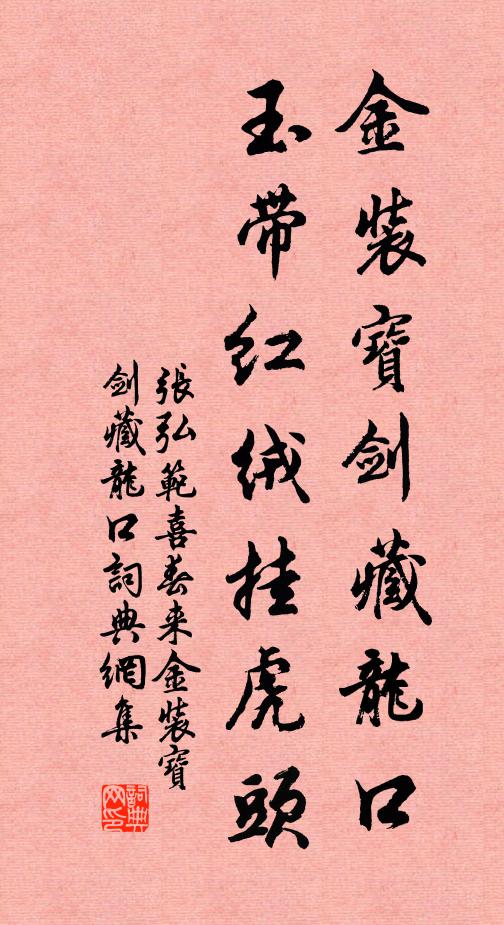 金裝寶劍藏龍口
玉带紅绒挂虎頭
張弘範喜春来金裝寶
劍藏龍口詞典網集
詞典
网印